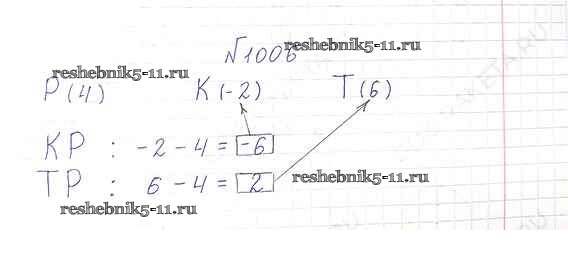 №1006
reshebnik5-11.ru
reshebnik5-11.ru
P(4) K(-2) T(6)
KP : -2 - 4 = -6
TP : 6 - 4 = 2
reshebnik5-11.ru
reshebnik5-11.ru